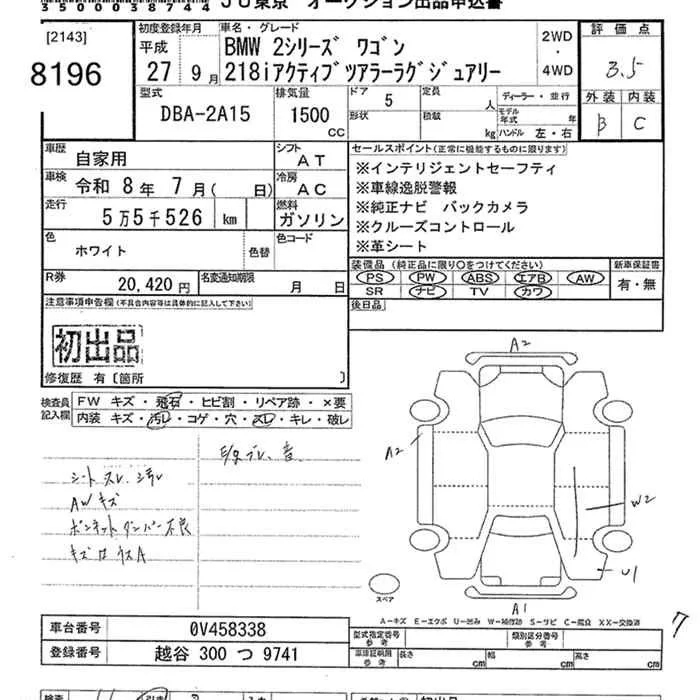 3500038744 JU東京 オークション出品申込書
[2143]
8196
初度登録年月
平成
27 9月
車名・グレード
BMW 2シリーズ ワゴン
218iアクティブツアラーラグジュアリー
2WD
・
4WD
評価点
3.5
外装 内装
B C
型式
DBA-2A15
排気量
1500
CC
ドア 5
形状
定員
人
積載
kg
ディーラー・並行
モデル年式 年
ハンドル 左・右
車歴
自家用
シフト
AT
車検
令和 8年 7月( 日)
冷房
AC
走行
5万5千526 km
燃料
ガソリン
色
ホワイト
色替
色コード
R券
20,420円
名変通知期限
月 日
セールスポイント(正常に機能するものに限ります)
※インテリジェントセーフティ
※車線逸脱警報
※純正ナビ バックカメラ
※クルーズコントロール
※革シート
装備品(純正品に限り○をつけてください)
PS PW ABS エアB AW
SR ナビ TV カワ
新車保証書
有・無
後日品
注意事項申告欄(不具合内容等は具体的に記入して下さい)
初出品
修復歴 有〔箇所 〕
検査員
記入欄
FW キズ・飛石・ヒビ割・リペア跡・×要
内装 キズ・汚レ・コゲ・穴・スレ・キレ・破レ
シート スレ、汚レ
AWキズ
ボンネットダンパー不良
E/gブレ、音
A2
A2
W2
U1
A1
スペア
7
A-キズ E-エクボ U-凹み W-補修跡 S-サビ C-腐食 XX-交換済
車台番号 0V458338
登録番号 越谷 300 つ 9741
型式指定番号
参考
類別区分番号
参考
車庫証明用
参考
長さ cm 幅 cm 高さ cm